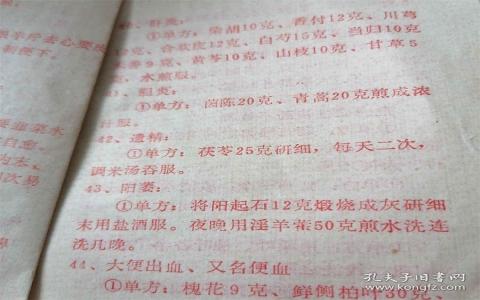 ①单方:柴胡10克、香付12克、川芎
克、合欢皮12克、白芍15克、当归10克
9克、黄芩10克、山枝10克、甘草5
克,水煎服。
①单方:茵陈20克、青蒿20克煎成浓
汁服。
42、遗精:
①单方:茯苓25克研细,每天二次,
调米汤吞服。
43、阳萎:
①单方:将阳起石12克煅烧成灰研细
末用盐酒服。夜晚用淫羊藿50克煎水洗连
洗几晚。
44、大便出血、又名便血
①单方:槐花9克、鲜侧柏叶30克、
孔夫子旧书网